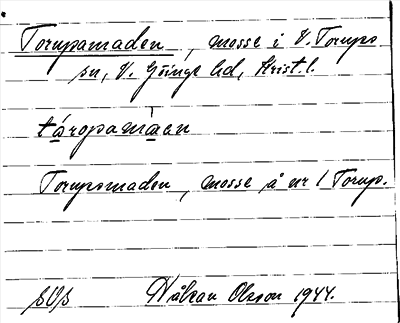 Torupamaden, mosse i V. Torups
sn, V. Göinge hd, Krist. l.
táropamàen
Torupsmaden, mosse å nr 1 Torup.
SOS Håkan Olsson 1944.